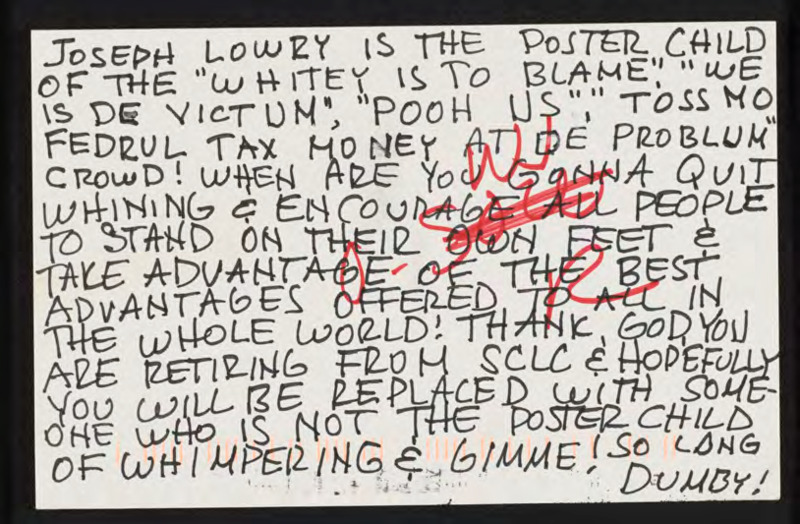 JOSEPH LOWRY IS THE POSTER CHILD
OF THE "WHITEY IS TO BLAME", "WE
IS DE VICTUM", "POOH US", "TOSS MO
FEDRUL TAX MONEY AT DE PROBLUM"
CROWD! WHEN ARE YOU GONNA QUIT
WHINING & ENCOURAGE ALL PEOPLE
TO STAND ON THEIR OWN FEET &
TAKE ADVANTAGE OF THE BEST
ADVANTAGES OFFERED TO ALL IN
THE WHOLE WORLD! THANK GOD YOU
ARE RETIRING FROM SCLC & HOPEFULLY
YOU WILL BE REPLACED WITH SOME-
ONE WHO IS NOT THE POSTER CHILD
OF WHIMPERING & GIMME! SO LONG
DUMBY!